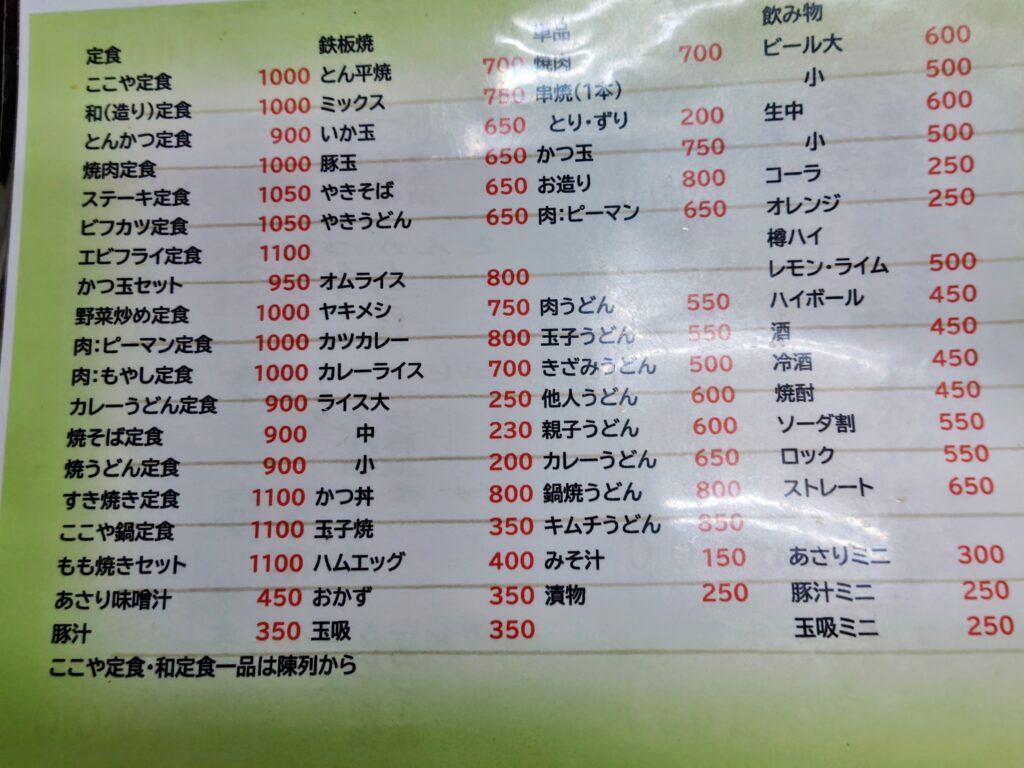 定食
ここや定食 1000
和(造り)定食 1000
とんかつ定食 900
焼肉定食 1000
ステーキ定食 1050
ビフカツ定食 1050
エビフライ定食 1100
かつ玉セット 950
野菜炒め定食 1000
肉:ピーマン定食 1000
肉:もやし定食 1000
カレーうどん定食 900
焼そば定食 900
焼うどん定食 900
すき焼き定食 1100
ここや鍋定食 1100
もも焼きセット 1100
あさり味噌汁 450
豚汁 350
ここや定食・和定食一品は陳列から
鉄板焼
とん平焼 700
ミックス 750
いか玉 650
豚玉 650
やきそば 650
やきうどん 650
オムライス 800
ヤキメシ 750
カツカレー 800
カレーライス 700
ライス大 250
中 230
小 200
かつ丼 800
玉子焼 350
ハムエッグ 400
おかず 350
玉吸 350
単品
焼肉 700
串焼(1本)
とり・ずり 200
かつ玉 750
お造り 800
肉:ピーマン 650
肉うどん 550
玉子うどん 550
きざみうどん 500
他人うどん 600
親子うどん 600
カレーうどん 650
鍋焼うどん 800
キムチうどん 850
みそ汁 150
漬物 250
飲み物
ビール大 600
小 500
生中 600
小 500
コーラ 250
オレンジ 250
樽ハイ
レモン・ライム 500
ハイボール 450
酒 450
冷酒 450
焼酎 450
ソーダ割 550
ロック 550
ストレート 650
あさりミニ 300
豚汁ミニ 250
玉吸ミニ 250